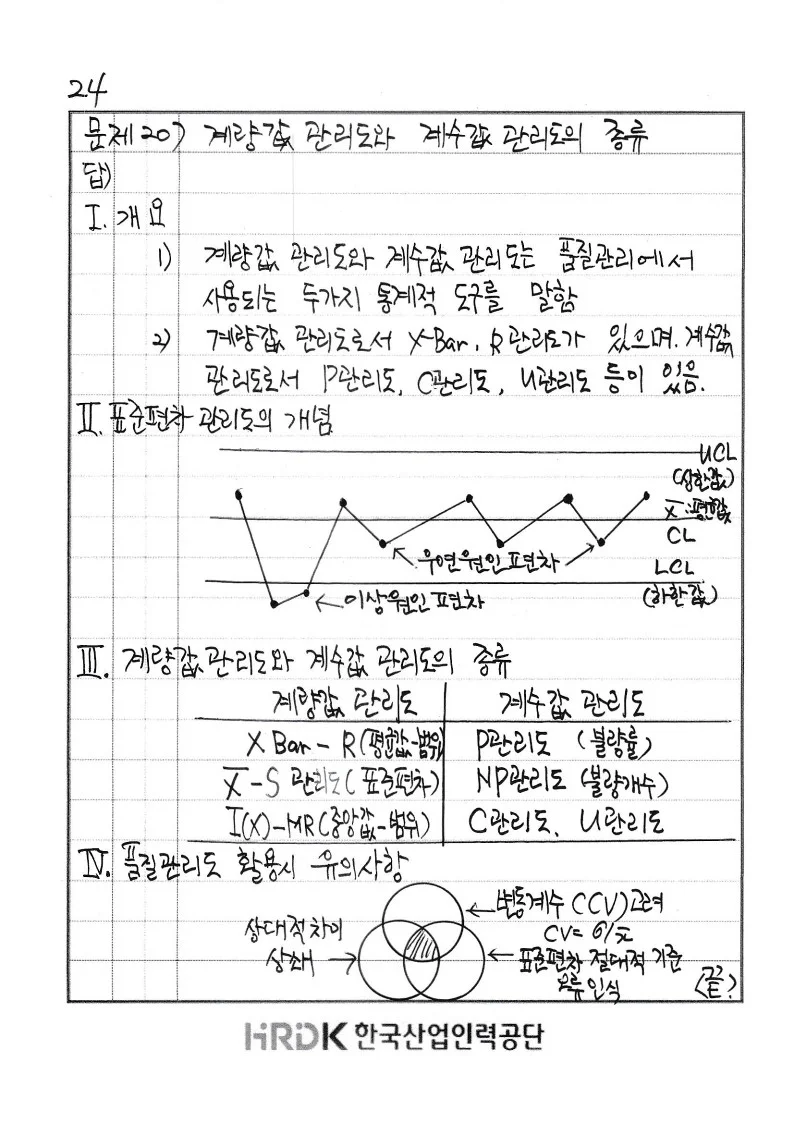 24
문제 20) 계량값 관리도와 계수값 관리도의 종류
답)
I. 개요
1) 계량값 관리도와 계수값 관리도는 품질관리에서
사용되는 두가지 통계적 도구를 말함
2) 계량값 관리도로서 X-Bar, R관리도가 있으며, 계수값
관리도로서 P관리도, C관리도, U관리도 등이 있음.
II. 표준편차 관리도의 개념
UCL
(상한값)
x̄:평균값
CL
우연원인 표편차
LCL
(하한값)
이상원인 표편차
III. 계량값 관리도와 계수값 관리도의 종류
계량값 관리도 계수값 관리도
X Bar - R(평균값-범위) P관리도 (불량률)
X̄-S 관리도(표준편차) NP관리도 (불량개수)
I(X)-MR(중앙값-범위) C관리도, U관리도
IV. 품질관리도 활용시 유의사항
변동계수 (CV)고려
CV= σ/x̄
상대적 차이
상쇄
표준편차 절대적 기준
오류인식
〈끝〉
HRDK 한국산업인력공단